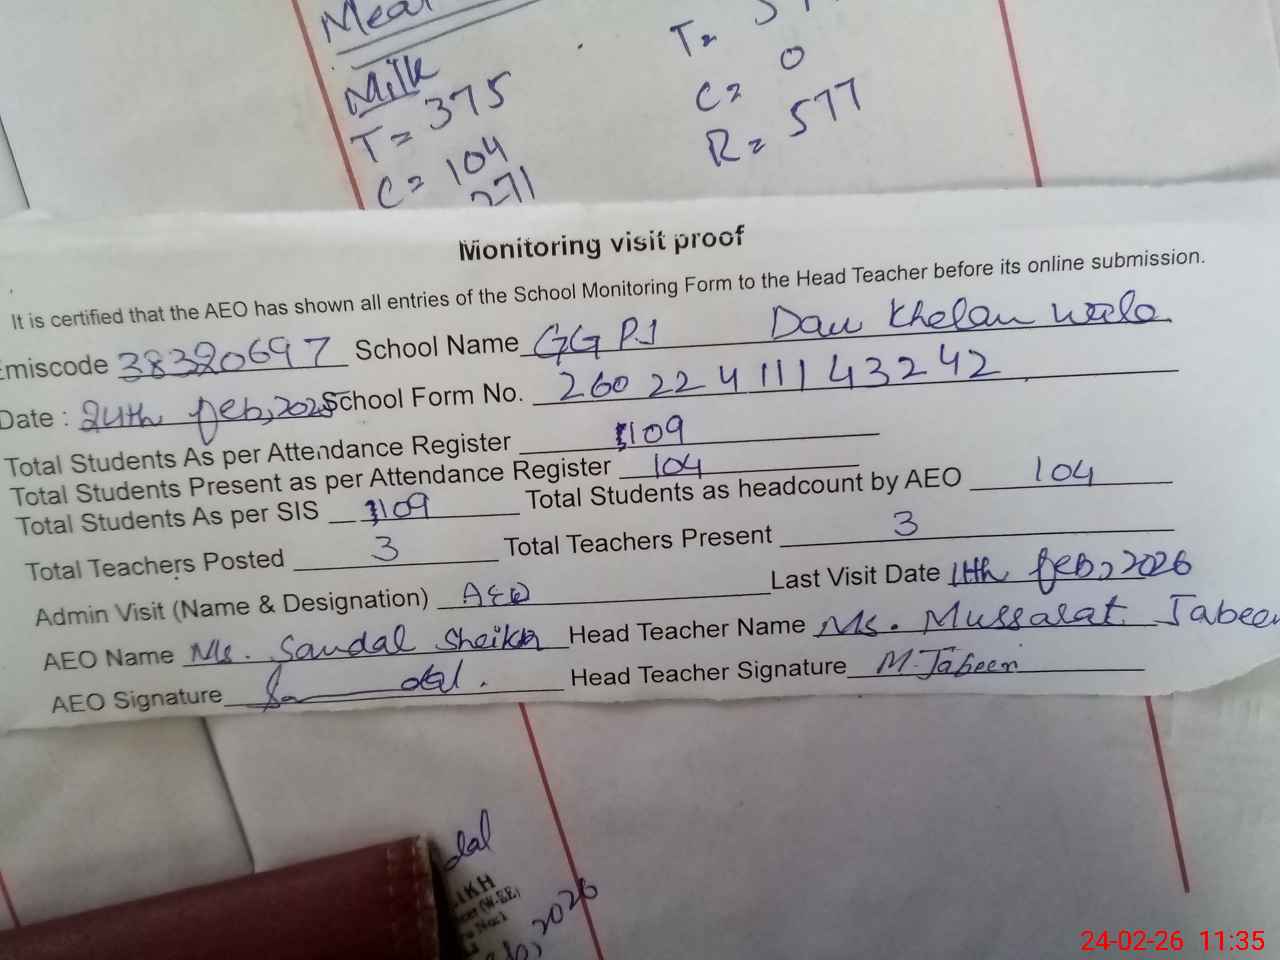 Meal
Milk
T = 375
C = 104
271
T =
C = 0
R = 577
Monitoring visit proof
It is certified that the AEO has shown all entries of the School Monitoring Form to the Head Teacher before its online submission.
Emiscode 38320697 School Name GGPS Dau Khelan wala
Date : 24th feb, 2025 School Form No. 260 22 4 111 43242
Total Students As per Attendance Register 109
Total Students Present as per Attendance Register 104
Total Students As per SIS 109 Total Students as headcount by AEO 104
Total Teachers Posted 3 Total Teachers Present 3
Admin Visit (Name & Designation) AEO Last Visit Date 11th feb, 2026
AEO Name Ms. Sandal Sheikh Head Teacher Name Ms. Mussarat Jabeen
AEO Signature Sandal. Head Teacher Signature M. Jabeen
dal
IKH
(W-EE)
2026
24-02-26 11:35